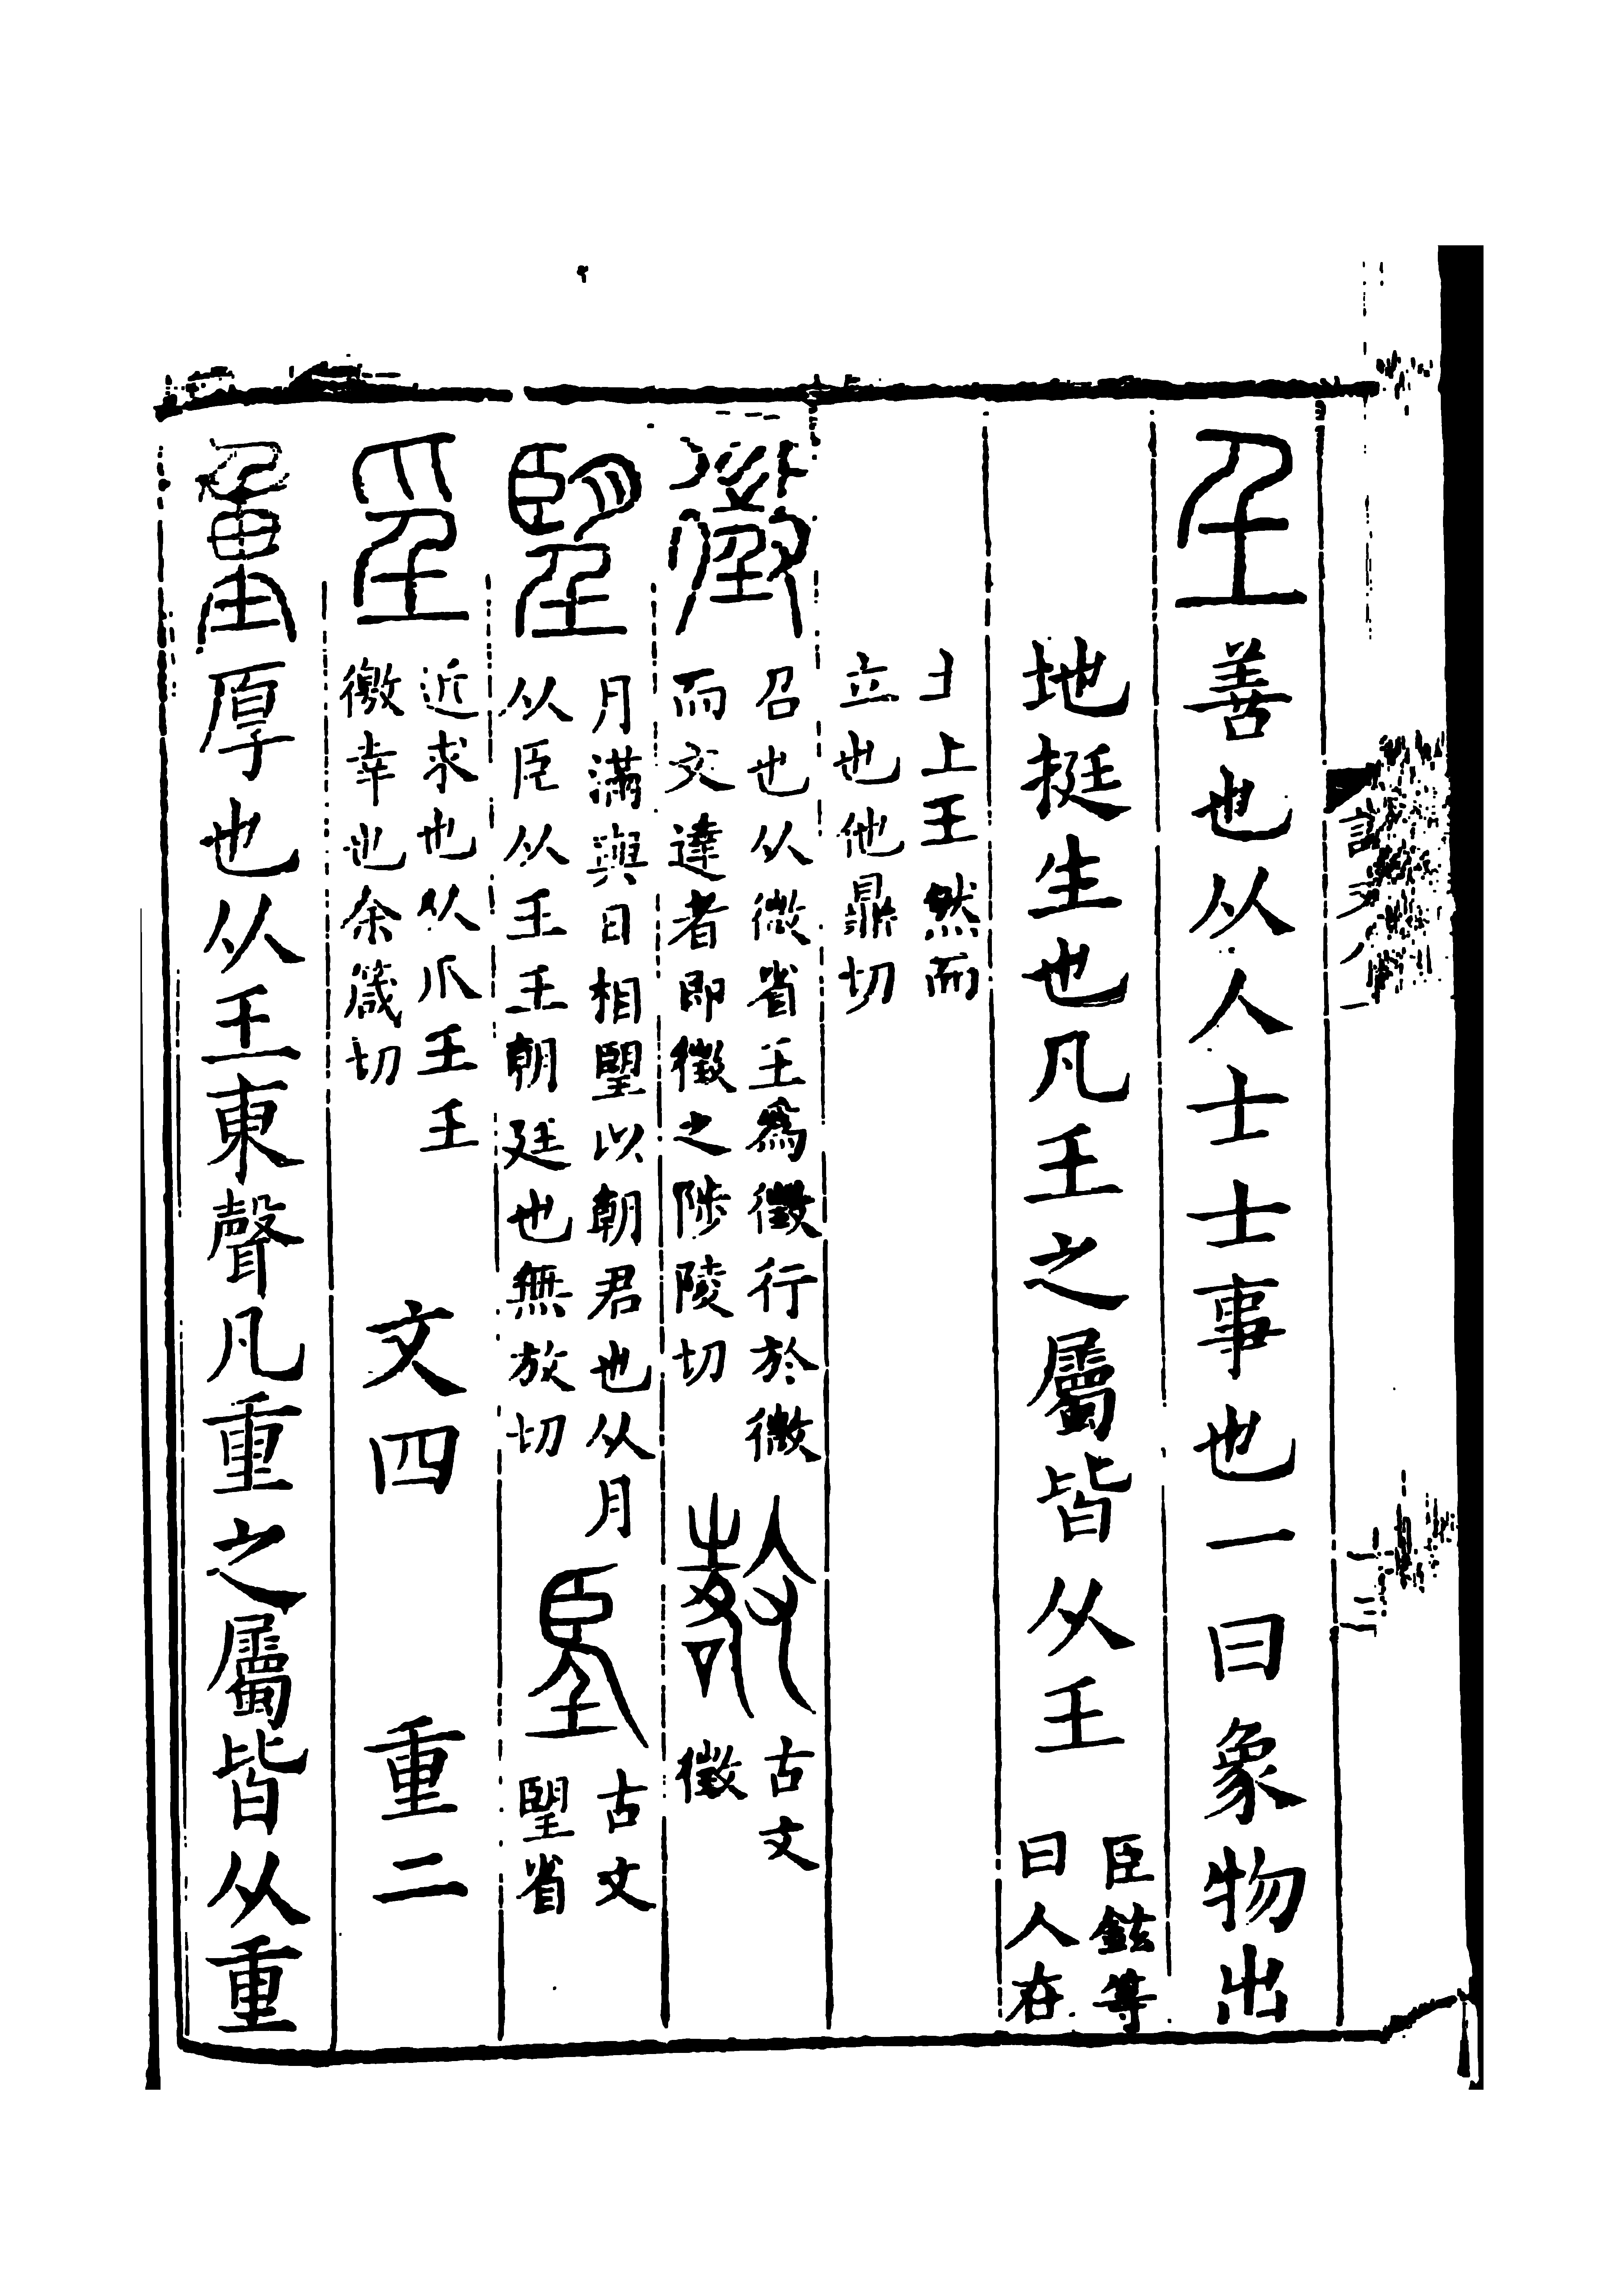 𡈼善也从人士士事也一曰象物出
地挺生也凡𡈼之屬皆从𡈼臣鉉等曰人在
土上𡈼然而立也他鼎切
徵召也从微省𡈼為徵行於微而文達者即徵之陟陵切𢾷古文徵
朢月滿與日相朢以朝君也从月从臣从𡈼𡈼朝廷也無放切𦣠古文朢省
㸒近求也从爪𡈼𡈼徼幸也余箴切 文四 重二
重厚也从𡈼東聲凡重之屬皆从重